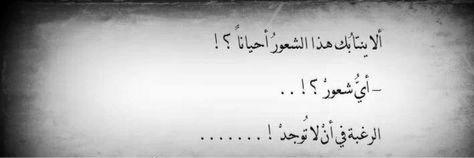 ألا ينتابك هذا الشعورُ أحياناً ؟ !
– أيُّ شعورْ ؟ ! . .
الرغبة في أنْ لا تُوجدْ ! . . . . . . .